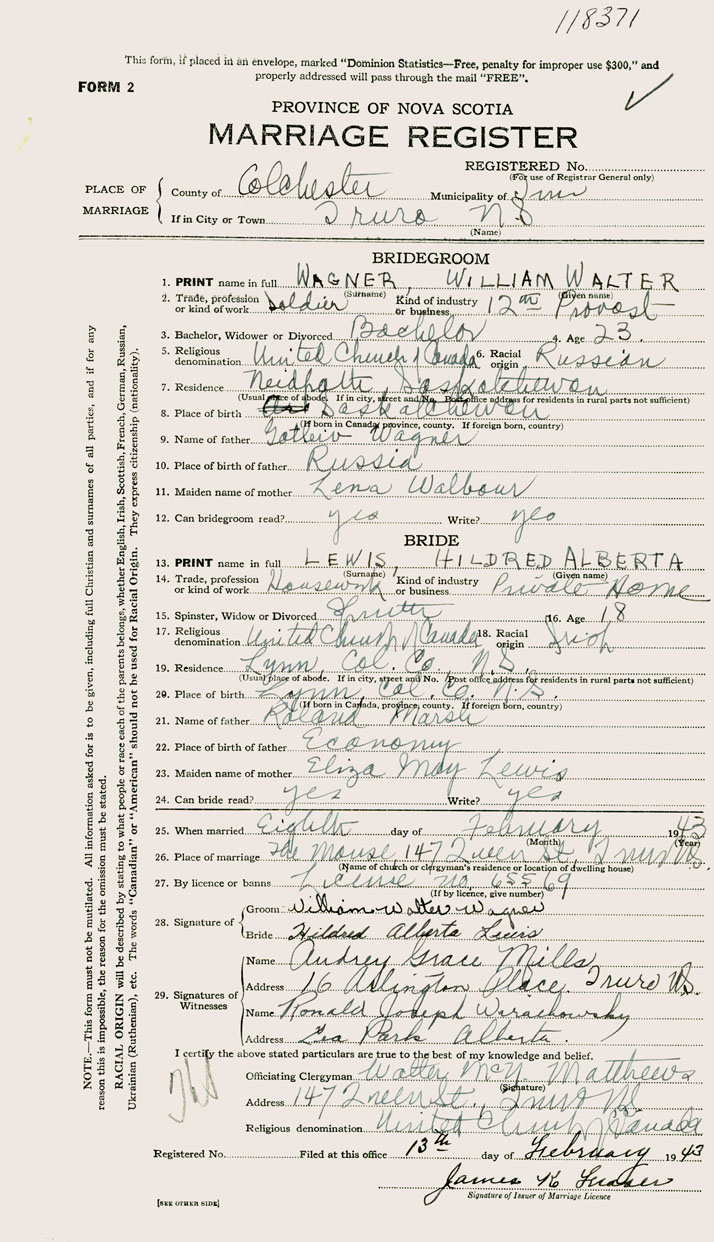 118371
This form, if placed in an envelope, marked “Dominion Statistics—Free, penalty for improper use $300,” and
properly addressed will pass through the mail “FREE”.
FORM 2
PROVINCE OF NOVA SCOTIA
MARRIAGE REGISTER
REGISTERED No.
(For use of Registrar General only)
PLACE OF MARRIAGE
County of Colchester Municipality of
If in City or Town Truro N S
(Name)
BRIDEGROOM
1. PRINT name in full WAGNER, WILLIAM WALTER
(Surname) (Given name)
2. Trade, profession or kind of work Soldier Kind of industry or business 12th Provost
3. Bachelor, Widower or Divorced Bachelor 4. Age 23.
5. Religious denomination United Church of Canada 6. Racial origin Russian
7. Residence Neidpath, Saskatchewan
(Usual place of abode. If in city, street and No. Post office address for residents in rural parts not sufficient)
8. Place of birth Saskatchewan
(If born in Canada, province, county. If foreign born, country)
9. Name of father Gotleiv Wagner
10. Place of birth of father Russia
11. Maiden name of mother Lena Walbour
12. Can bridegroom read? yes Write? yes
BRIDE
13. PRINT name in full LEWIS, HILDRED ALBERTA
(Surname) (Given name)
14. Trade, profession or kind of work Housework Kind of industry or business Private Home
15. Spinster, Widow or Divorced 16. Age 18
17. Religious denomination United Church of Canada 18. Racial origin Irish
19. Residence Lynn, Col. Co., N.S.
(Usual place of abode. If in city, street and No. Post office address for residents in rural parts not sufficient)
20. Place of birth Lynn, Col. Co. N.S.
(If born in Canada, province, county. If foreign born, country)
21. Name of father Roland Marsh
22. Place of birth of father Economy
23. Maiden name of mother Eliza May Lewis
24. Can bride read? yes Write? yes
25. When married Eighth day of February 1943
(Month) (Year)
26. Place of marriage The Manse 147 Queen St., Truro N.S.
(Name of church or clergyman's residence or location of dwelling house)
27. By licence or banns License no. 65569
(If by licence, give number)
28. Signature of
Groom William Walter Wagner
Bride Hildred Alberta Lewis
29. Signatures of Witnesses
Name Audrey Grace Mills
Address 16 Arlington Place Truro N.S.
Name Ronald Joseph
Address Lea Park Alberta.
I certify the above stated particulars are true to the best of my knowledge and belief.
Officiating Clergyman Walter McY. Matthews
(Signature)
Address 147 Queen St., Truro NS
Religious denomination United Church of Canada
Registered No. Filed at this office 13th day of February 1943
James K Fraser
Signature of Issuer of Marriage Licence
[SEE OTHER SIDE]
NOTE.—This form must not be mutilated. All information asked for is to be given, including full Christian and surnames of all parties, and if for any
reason this is impossible, the reason for the omission must be stated.
RACIAL ORIGIN will be described by stating to what people or race each of the parents belongs, whether English, Irish, Scottish, French, German, Russian,
Ukrainian (Ruthenian), etc. The words “Canadian” or “American” should not be used for Racial Origin. They express citizenship (nationality).